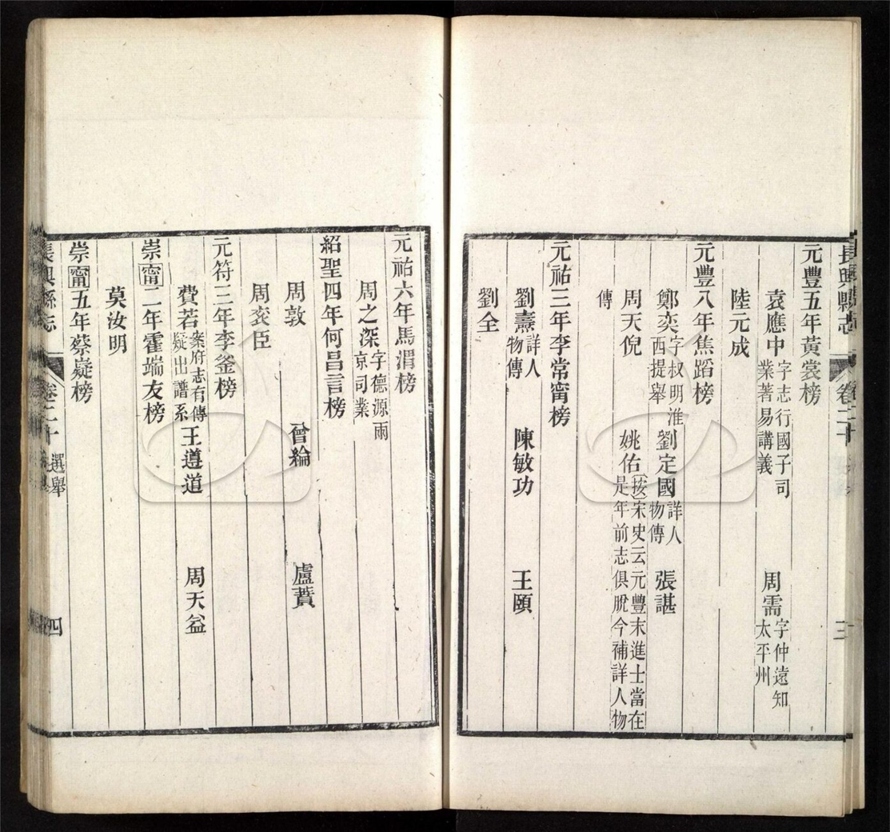 元豐五年黃裳榜
袁應中 字志行國子司業著易講義 周需 字仲遠知太平州
陸元成
元豐八年焦蹈榜
鄭奕 字叔明淮西提舉 劉定國 詳人物傳 張諶
周天倪 姚佑 按宋史云元豐末進士當在是年前志俱脫今補詳人物
傳
元祐三年李常甯榜
劉燾 詳人物傳 陳敏功 王頤
劉全
長興縣志 卷二十 三
元祐六年馬涓榜
周之深 字德源兩京司業
紹聖四年何昌言榜
周敦 曾綸 盧蕡
周袞臣
元符三年李釜榜
費若 案府志有傳疑出譜系 王遵道 周天益
崇甯二年霍端友榜
莫汝明
崇甯五年蔡嶷榜
長興縣志 卷二十 選舉 四